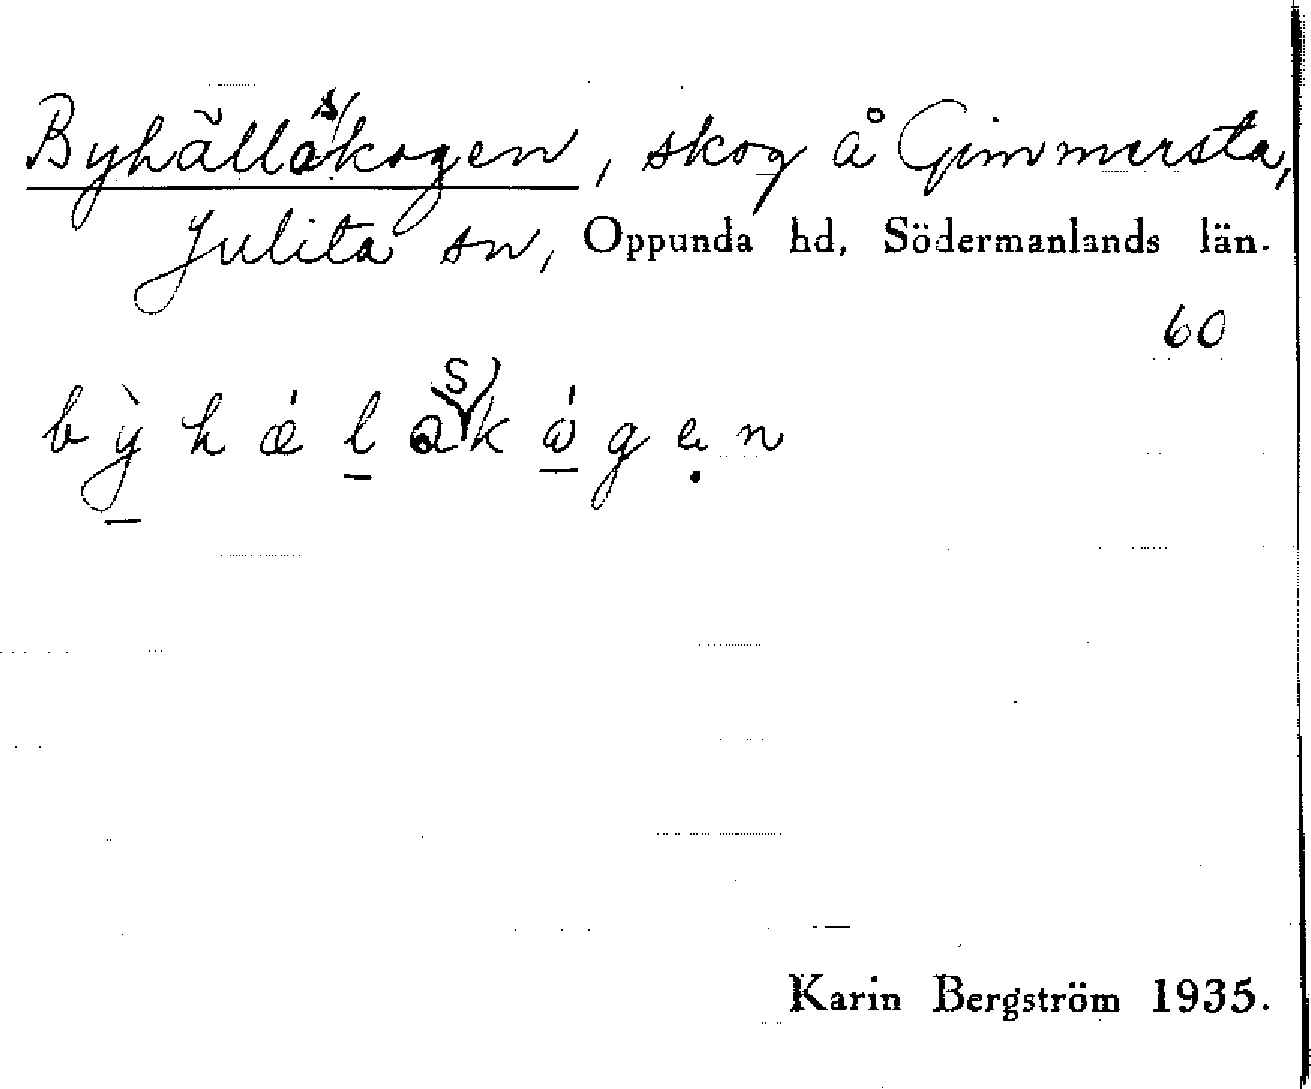 Byhällaskogen, skog å Gimmersta,
Julita sn, Oppunda hd, Södermanlands län.
60
bỳhǽlaskógẹn
Karin Bergström 1935.